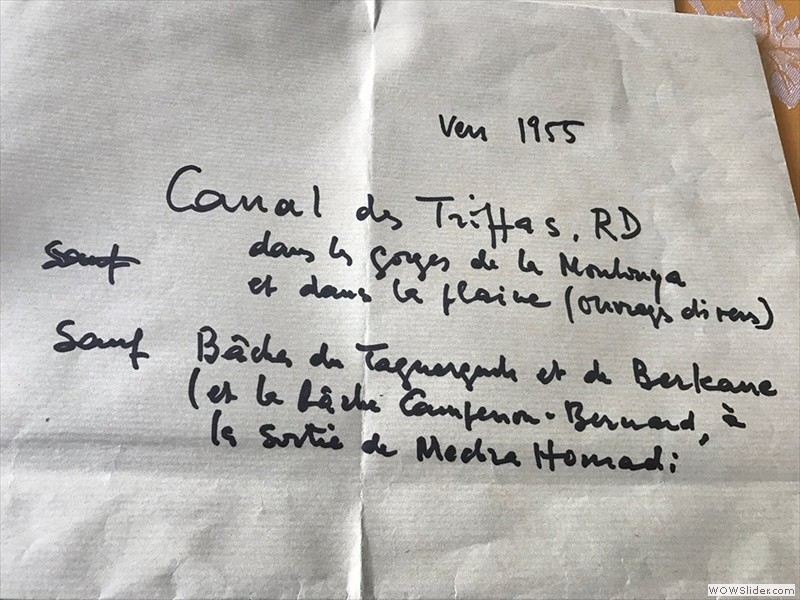 Vers 1955
Canal des Triffas, RD
dans les gorges de la Moulouya
et dans la plaine (ouvrages divers)
Sauf
Sauf Bâches du et de Berkane
(et la bâche Campenon-Bernard, à
la sortie de Mechra Homadi
WOWSlider.com